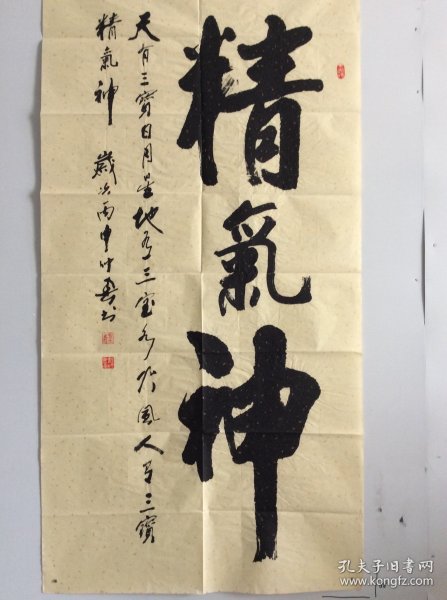 精氣神
天有三寳日月星地有三宝水火風人有三寳
精氣神 歲次丙申
孔夫子旧书网
www.kongfz.com